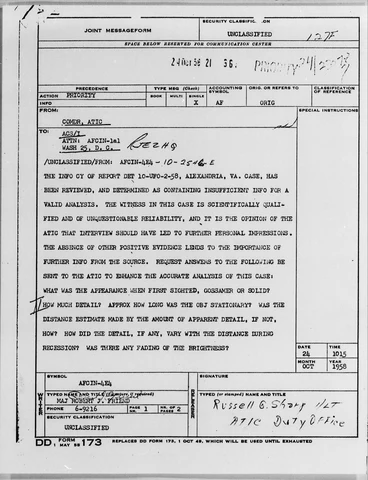 JOINT MESSAGEFORM
SECURITY CLASSIFICATION
UNCLASSIFIED
127F
SPACE BELOW RESERVED FOR COMMUNICATION CENTER
24 Oct 58 21 56
PRIORITY
PRECEDENCE
TYPE MSG (Check)
ACCOUNTING SYMBOL
ORIG. OR REFERS TO
CLASSIFICATION OF REFERENCE
ACTION PRIORITY
BOOK MULTI SINGLE
INFO
X AF ORIG
FROM:
SPECIAL INSTRUCTIONS
COMDR, ATIC
TO:
ACS/I
ATTN: AFCIN-1x1
WASH 25, D. C.
RJEZHQ
/UNCLASSIFIED/FROM: AFCIN-4E4 -10-2516-E
THE INFO CY OF REPORT DET 10-UFO-2-58, ALEXANDRIA, VA. CASE, HAS
BEEN REVIEWED, AND DETERMINED AS CONTAINING INSUFFICIENT INFO FOR A
VALID ANALYSIS. THE WITNESS IN THIS CASE IS SCIENTIFICALLY QUALI-
FIED AND OF UNQUESTIONABLE RELIABILITY, AND IT IS THE OPINION OF THE
ATIC THAT INTERVIEW SHOULD HAVE LED TO FURTHER PERSONAL IMPRESSIONS.
THE ABSENCE OF OTHER POSITIVE EVIDENCE LENDS TO THE IMPORTANCE OF
FURTHER INFO FROM THE SOURCE. REQUEST ANSWERS TO THE FOLLOWING BE
SENT TO THE ATIC TO ENHANCE THE ACCURATE ANALYSIS OF THIS CASE:
WHAT WAS THE APPEARANCE WHEN FIRST SIGHTED, GOSSAMER OR SOLID?
HOW MUCH DETAIL? APPROX HOW LONG WAS THE OBJ STATIONARY? WAS THE
DISTANCE ESTIMATE MADE BY THE AMOUNT OF APPARENT DETAIL, IF NOT,
HOW? HOW DID THE DETAIL, IF ANY, VARY WITH THE DISTANCE DURING
RECESSION? WAS THERE ANY FADING OF THE BRIGHTNESS?
DATE TIME
24 1015
MONTH YEAR
OCT 1958
SYMBOL
AFCIN-4E4
WRITER
TYPED NAME AND TITLE (Signature, if required)
MAJ ROBERT J. FRIEND
PHONE 6-9216 PAGE NR. 1 NR. OF PAGES 2
SECURITY CLASSIFICATION
UNCLASSIFIED
SIGNATURE
TYPED (or stamped) NAME AND TITLE
Russell G. Sharp 1/LT
ATIC Duty Officer
DD FORM 1 MAY 55 173 REPLACES DD FORM 173, 1 OCT 49, WHICH WILL BE USED UNTIL EXHAUSTED